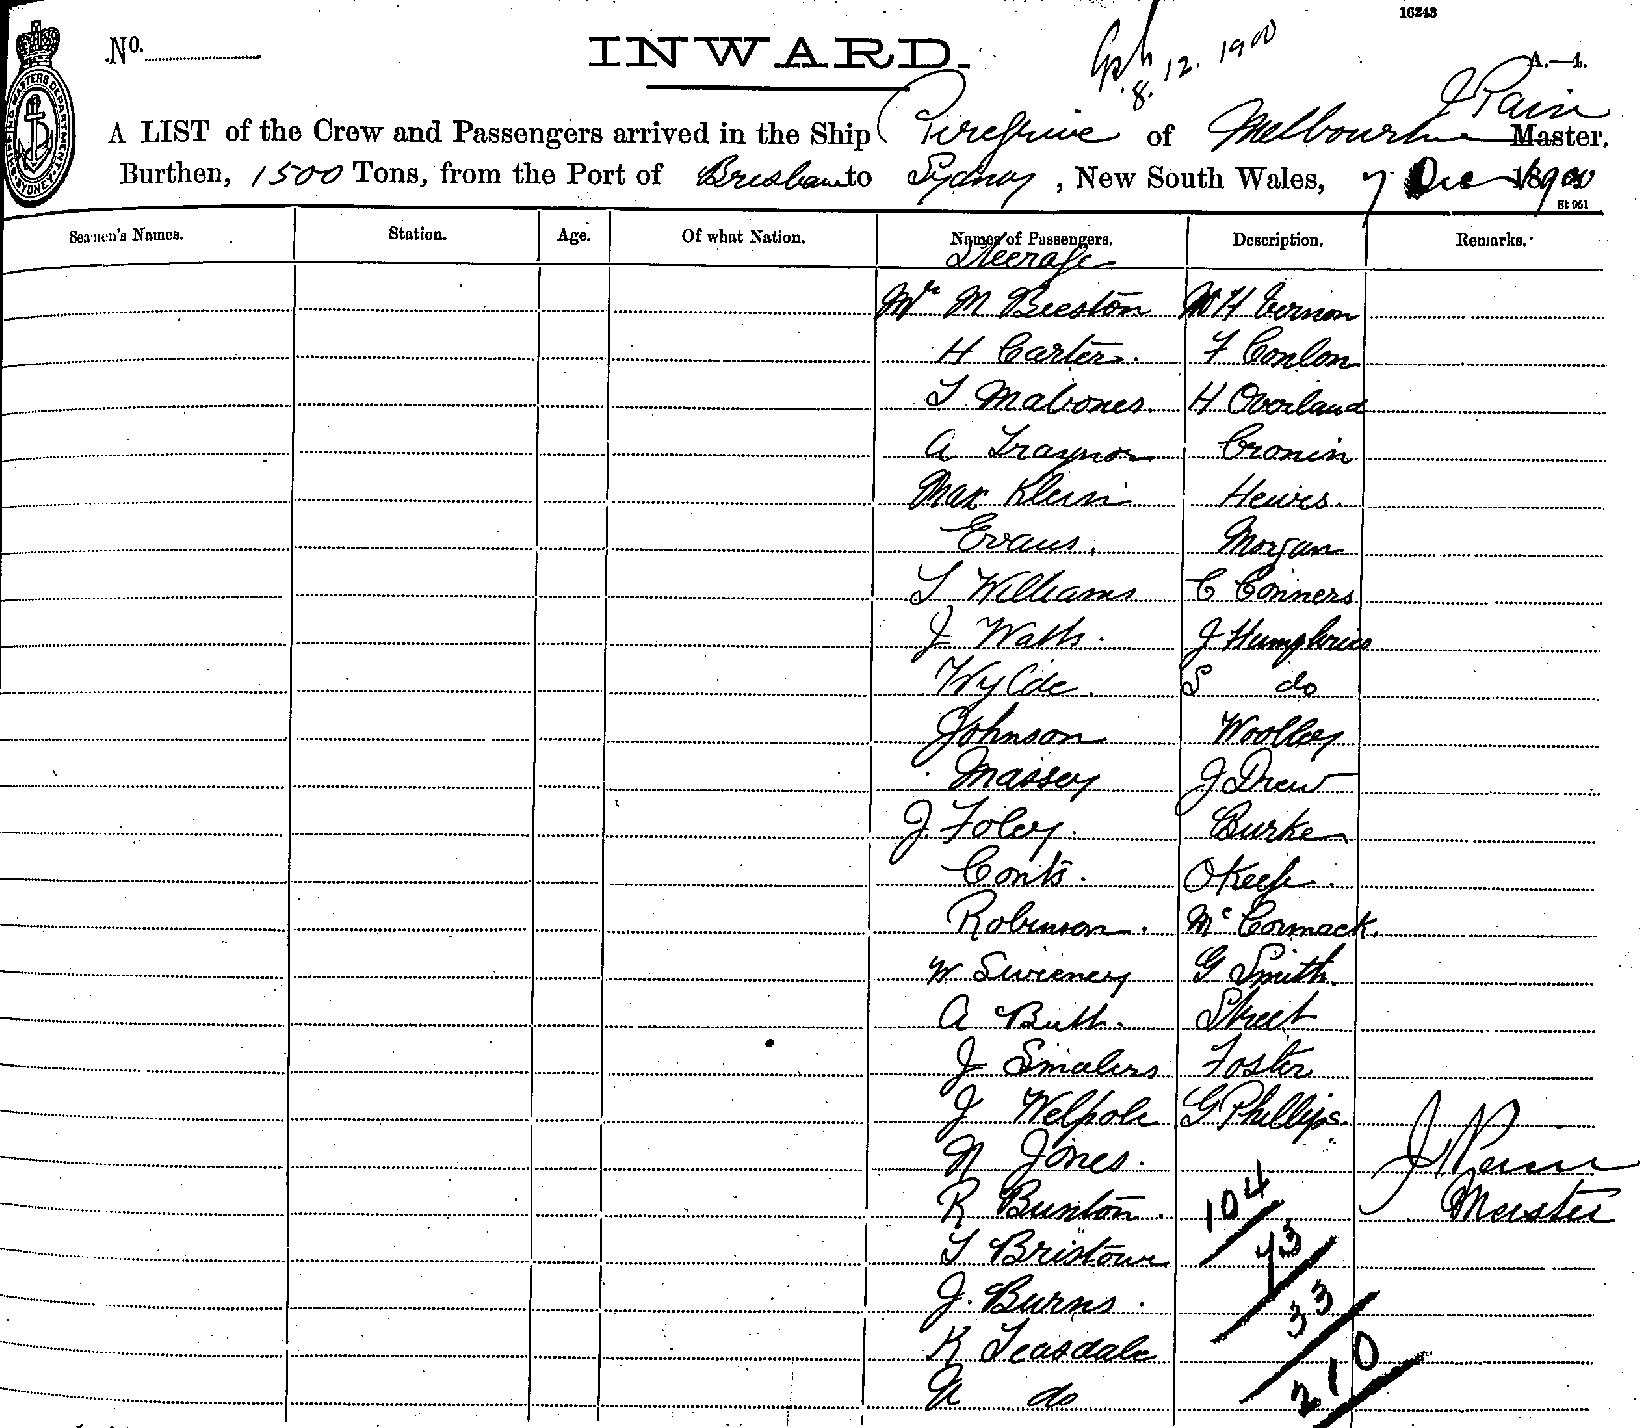 16243
No.
INWARD.
8.12.1900
A.—1.
J Pain
A LIST of the Crew and Passengers arrived in the Ship Peregrine of Melbourne Master,
Burthen, 1500 Tons, from the Port of Brisbane to Sydney, New South Wales, 7 Dec 1900
St 961
Seamen's Names. Station. Age. Of what Nation. Names of Passengers. Description. Remarks.
Steerage
Mr M Beeston W H Vernon
H Carter. F Conlon
T Mabones H Overland
A Traynor Cronin
Max Klein Hewes.
Evans. Morgan
T Williams C Conners
J Watts. J Humphries
Wylde. S do
Johnson Woolley
Massey J Drew
J. Foley. Burke
Conts. O Keefe.
Robinson. Mc Cormack.
W Sweeney G Smith.
A Butt. Street
J Smalers Foster
J Welpole G Phillips.
N Jones. J Pain
R Bunton. 104 Master
T Bristow 73
J. Burns. 33
K Teasdale 210
N do